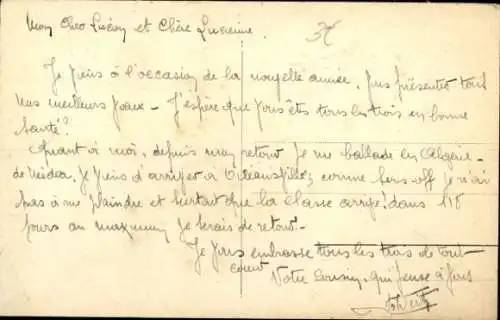 Mon Cher Lucien et Chère Lucienne.
Je viens à l'occasion de la nouvelle année, vous présenter tout
mes meilleurs vœux - J'espère que vous êtes tous les trois en bonne
santé?
Quant à moi, depuis mon retour je me ballade en Algérie
. Je viens d'arriver à Orléansville; comme sous-off je n'ai
pas à me plaindre et surtout que la classe arrive! dans 118
jours au maximum je serais de retour.-
Je vous embrasse tous les trois de tout
cœur
Votre cousin, qui pense à vous